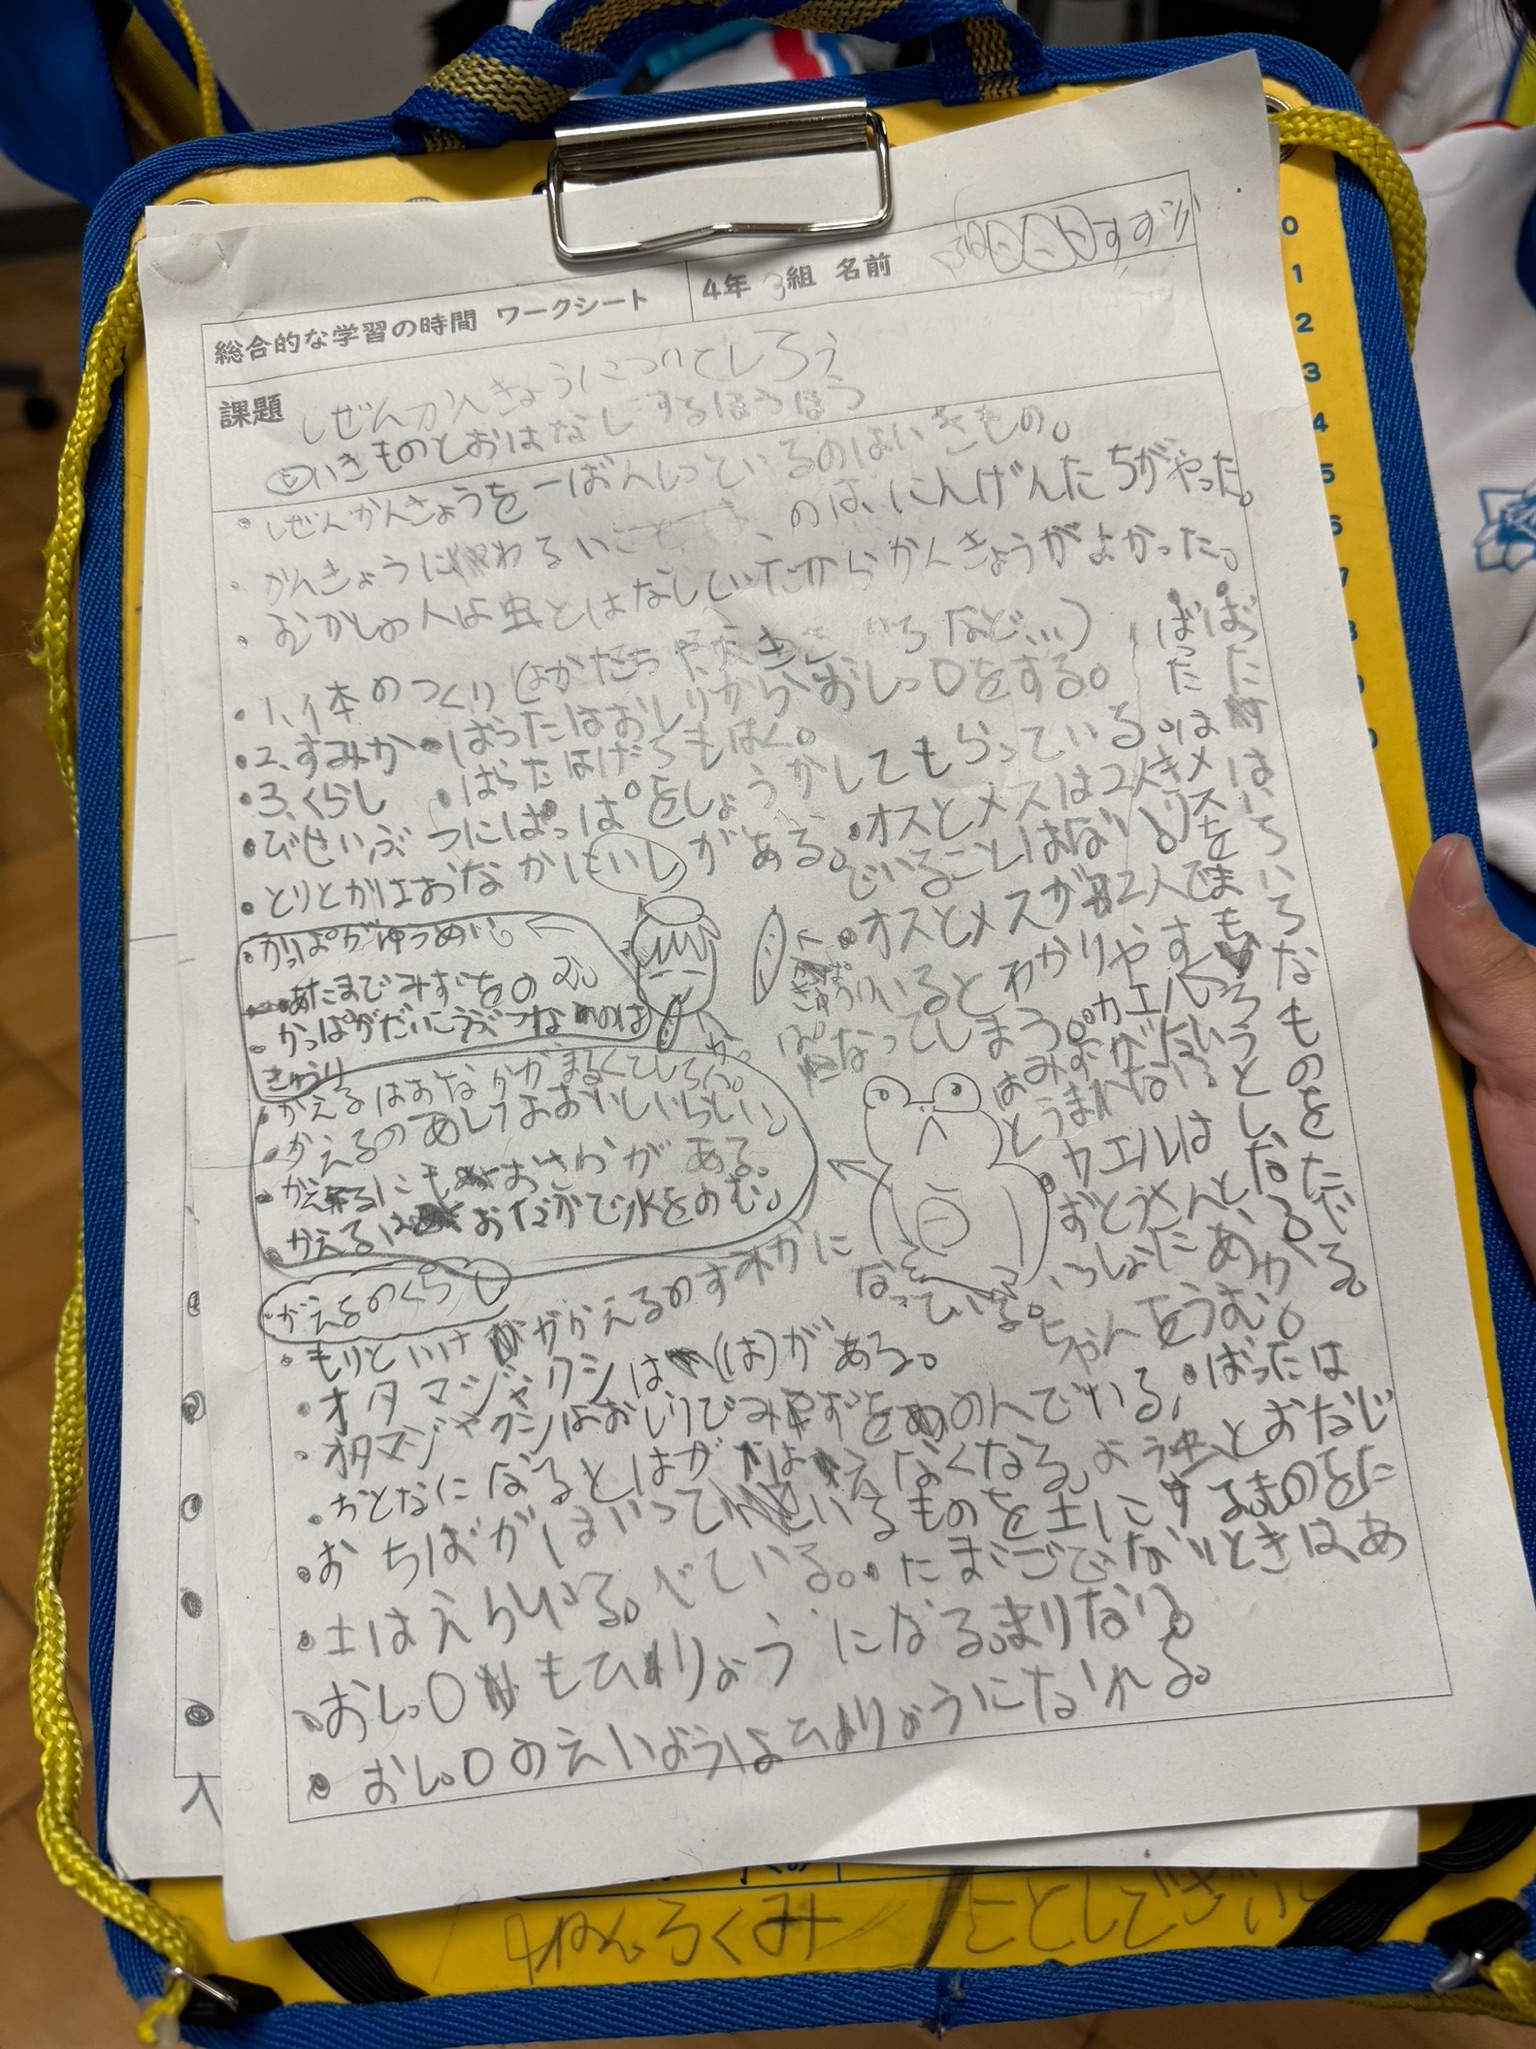 総合的な学習の時間 ワークシート
4年 3組 名前
課題
しぜんかんきょうについてしろう
いきものとおはなしするほうほう
・しぜんかんきょうを一ばんしっているのはいきもの。
・かんきょうにわるいことは、のは、にんげんたちがやった。
・むかしの人は虫とはなしていたからかんきょうがよかった。
・1、体のつくり(かたち 大きさ いろ など、、、)
・2、すみか ・ばったはおしりからおしっ0をする。
・3、くらし ・ばったはげろもはく。
・びせいぶつにはっぱをしょうかしてもらっている。
・とりとかはおなかにいしがある。
・オスとメスは2人き
でいることはない。
・オスとメスが2人で
いるとわかりやす
なってしまう。
・かっぱがゆうめい。
・あたまでみずをのむ。
・かっぱがだいこうぶつなのは
きゅうり
かっぱ
きゅうり
・かえるはおなかがまるくてしろい。
・かえるのあしはおいしいらしい。
・かえるにもおさわがある。
・かえるはおなかで水をのむ。
・カエル
はみずがない
とうまれない。
・カエルは
おとうさんと、
いっしょにあか
ちゃんをうむ。
・ばった
は
メスを
まも
ろうと
し、
・ばったは
いろいろなものをたべる。
かえるのくらし
・もりといけがかえるのすみかに
なっている。
・オタマジャクシは(は)がある。
・オタマジャクシはおしりでみずをのんでいる。
・おとなになるとはがはえなくなる。
・おちばがはいっているものを土にする。
・土はえらい。
・ばったは
とおなじ
ものをた
べている。
・たまごでないときは、あ
まりない。
・おしっ0もひりょうになる。
・おしっ0のえいようはひりょうになれる。
0
1
2
3
4
5
6
7
8
9
4ねんろくみ